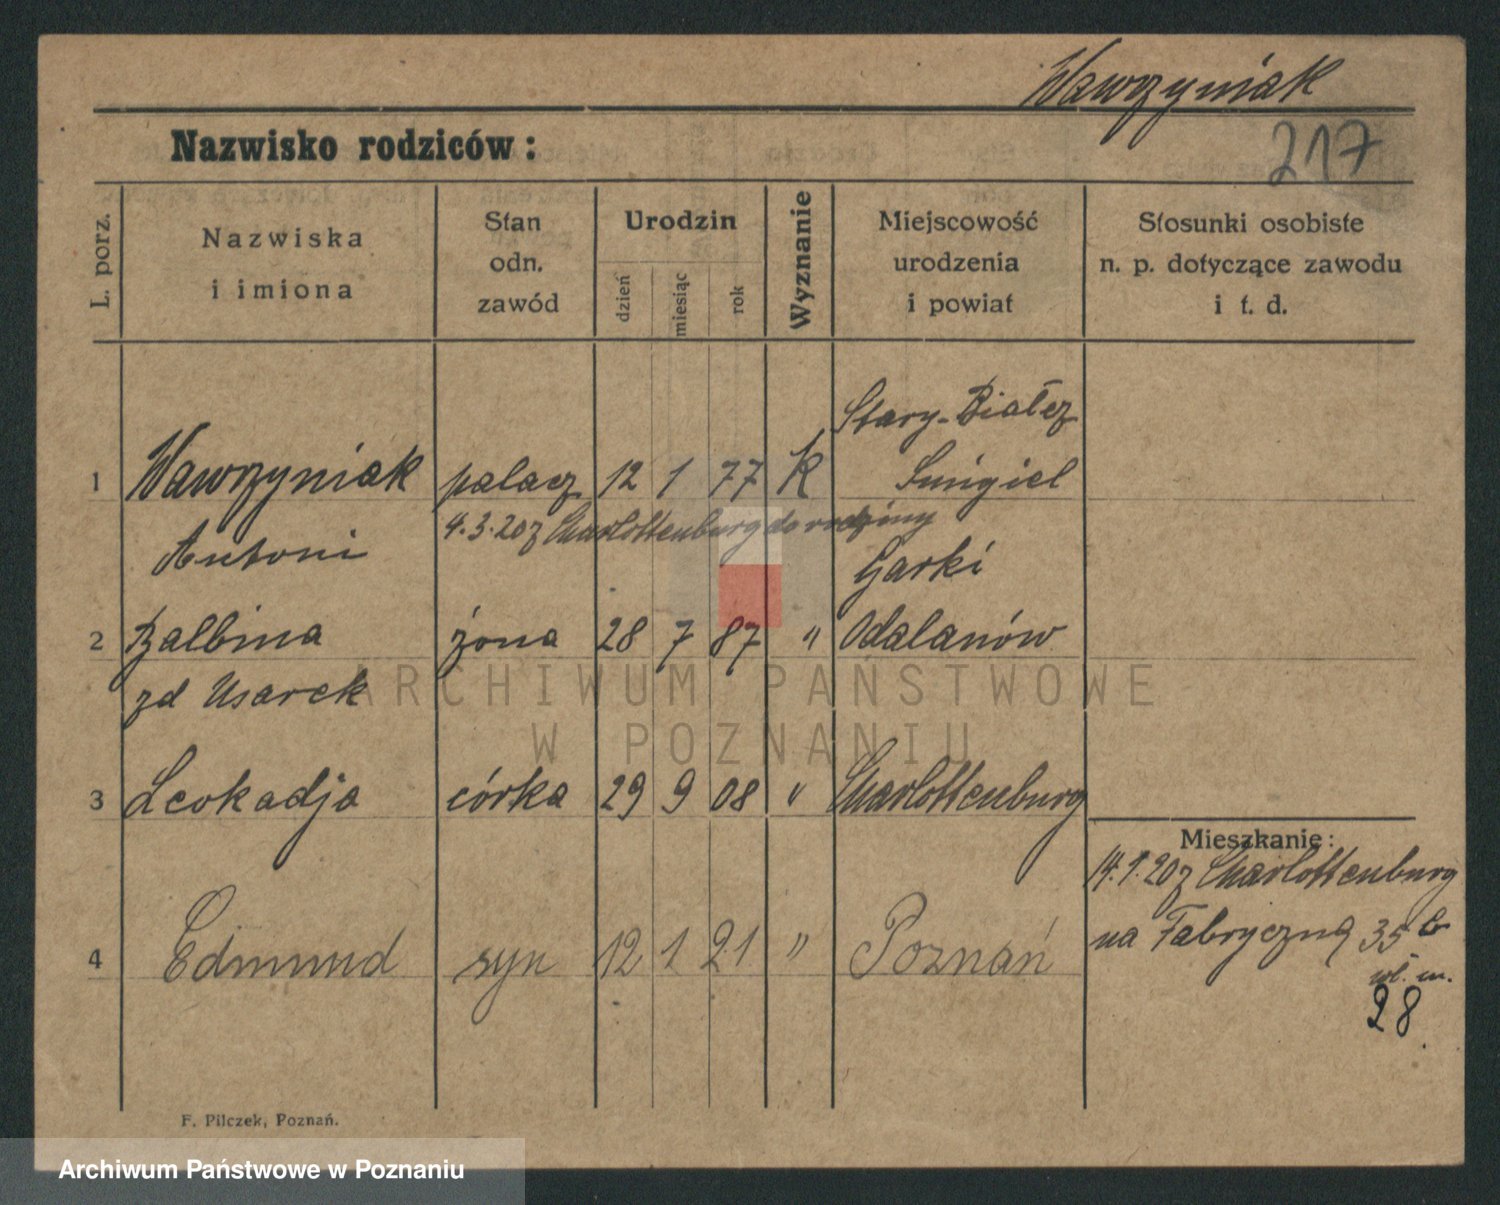 Wawrzyniak
Nazwisko rodziców:
217
L. porz.
Nazwiska
i imiona
Stan
odn.
zawód
Urodzin
dzień
miesiąc
rok
Wyznanie
Miejscowość
urodzenia
i powiat
Stosunki osobiste
n. p. dotyczące zawodu
i t. d.
Stary-Białcz
1 Wawrzyniak palacz 12 1 77 K Śmigiel
4.3.20 z Charlottenburg do rodziny
Antoni Garki
2 Balbina żona 28 7 87 " Odalanów
zd Usarek
ARCHIWUM PAŃSTWOWE
W POZNANIU
3 Leokadja córka 29 9 08 " Charlottenburg
Mieszkanie:
14.1.20 z Charlottenburg
na Fabryczną 35
wł. m.
28
4 Edmund syn 12 1 21 " Poznań
F. Pilczek, Poznań.
Archiwum Państwowe w Poznaniu